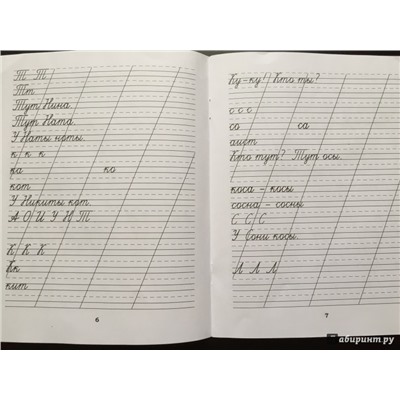 Т Т
Тт
Тут Нина.
Тут Ната.
У Наты ноты.
к к к
ка ко
кот
У Никиты кот.
А О И У Н Т
К К К
Кк
кит
6
Ку-ку! Кто ты?
с с с
со са
аист
Кто тут? Тут осы.
коса - косы
сосна - сосны
С С С
У Сони косы.
Л Л Л
7
лабиринт.ру